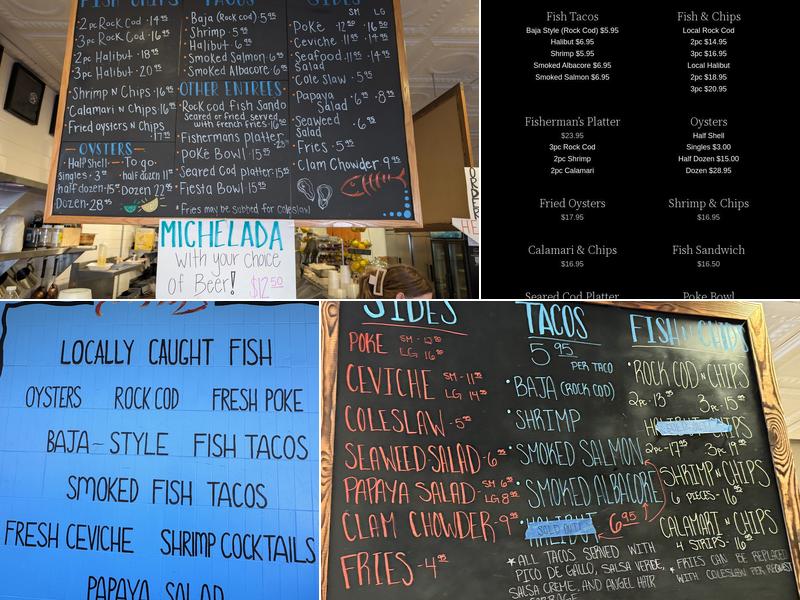 FISH CHIPS
• 2pc Rock Cod · 14.95
3pc Rock Cod · 16.95
2pc Halibut · 18.95
3pc Halibut · 20.95
• Shrimp N Chips · 16.95
• Calamari N Chips · 16.95
• Fried Oysters N Chips
· 17.95
— OYSTERS —
• Half Shell:
Singles · 3.00
half dozen · 15.00
Dozen · 28.95
To go:
half dozen 11.00
Dozen 22.00
TACOS
• Baja (Rock cod) · 5.95
• Shrimp · 5.95
• Halibut · 6.95
• Smoked Salmon · 6.95
• Smoked Albacore · 6.95
OTHER ENTREES
• Rock cod Fish Sando
seared or fried served
with french fries · 16.50
• Fishermans Platter
· 23.95
• Poké Bowl · 15.95
• Seared Cod platter · 15.95
• Fiesta Bowl · 15.95
* Fries may be subbed for coleslaw
SIDES
SM LG
• Poké · 12.50 · 16.50
• Ceviche · 11.95 · 14.95
• Seafood · 11.95 · 14.95
Salad
• Cole Slaw · 5.95
• Papaya · 6.95 · 8.95
Salad
• Seaweed · 6.95
Salad
• Fries · 5.95
• Clam Chowder · 9.95
MICHELADA
with your choice
of Beer! $12.50
Fish Tacos
Baja Style (Rock Cod) $5.95
Halibut $6.95
Shrimp $5.95
Smoked Albacore $6.95
Smoked Salmon $6.95
Fish & Chips
Local Rock Cod
2pc $14.95
3pc $16.95
Local Halibut
2pc $18.95
3pc $20.95
Fisherman's Platter
$23.95
3pc Rock Cod
2pc Shrimp
2pc Calamari
Oysters
Half Shell
Singles $3.00
Half Dozen $15.00
Dozen $28.95
Fried Oysters
$17.95
Shrimp & Chips
$16.95
Calamari & Chips
$16.95
Fish Sandwich
$16.50
Seared Cod Platter
Poke Bowl
LOCALLY CAUGHT FISH
OYSTERS ROCK COD FRESH POKE
BAJA-STYLE FISH TACOS
SMOKED FISH TACOS
FRESH CEVICHE SHRIMP COCKTAILS
PAPAYA SALAD
SIDES
POKE SM - 12.50
LG 16.50
CEVICHE SM - 11.95
LG 14.95
COLESLAW - 5.95
SEAWEED SALAD - 6.95
PAPAYA SALAD - SM 6.95
LG 8.95
CLAM CHOWDER - 9.95
FRIES - 4.95
TACOS
5.95
PER TACO
• BAJA (ROCK COD)
• SHRIMP
• SMOKED SALMON
• SMOKED ALBACORE
• HALIBUT 6.95
SOLD OUT
* ALL TACOS SERVED WITH
PICO DE GALLO, SALSA VERDE,
SALSA CREME, AND ANGEL HAIR
CABBAGE
FISH N CHIPS
• ROCK COD N CHIPS
2pc - 13.95 3pc - 15.95
HALIBUT CHIPS
2pc - 17.95 3pc - 19.95
SHRIMP N CHIPS
6 PIECES - 16.95
CALAMARI N CHIPS
4 STRIPS - 16.95
* FRIES CAN BE REPLACED
WITH COLESLAW PER REQUEST